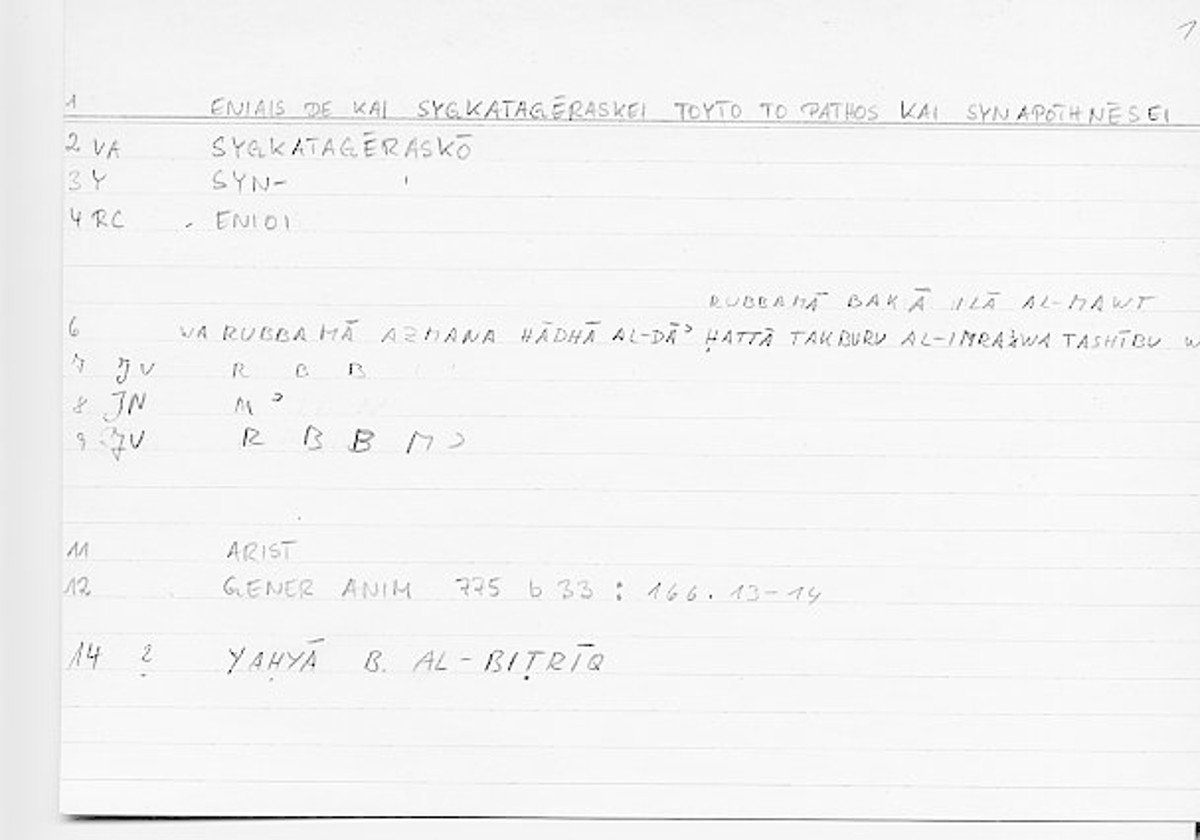 1
1 ENIAIS DE KAI SYGKATAGĒRASKEI TOYTO TO PATHOS KAI SYNAPOTHNĒSEI
2 VA SYGKATAGĒRASKŌ
3 Y SYN-
4 RC ENIOI
RUBBAMĀ BAKĀ ILĀ AL-MAWT
6 WA RUBBAMĀ AZMANA HĀDHĀ AL-DĀʾ ḤATTĀ TAKBURU WA TASHĪBU
7 JV R B B
8 JN M ʾ
9 JV R B B M ʾ
11 ARIST
12 GENER ANIM 775 b 33 : 166. 13-14
14 ? YAḤYĀ B. AL-BIṬRĪQ